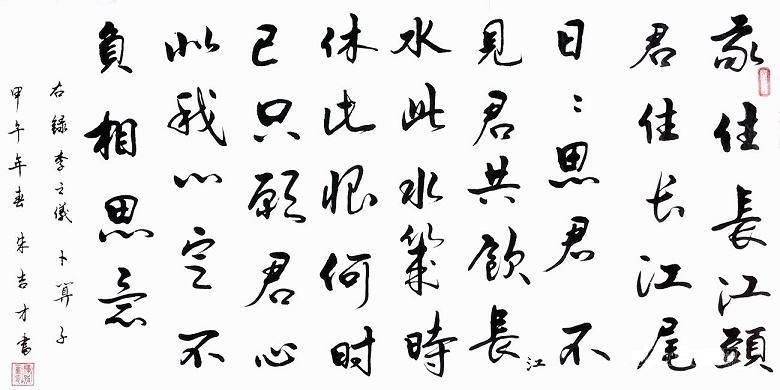 我住長江頭
君住长江尾
日〻思君不
見君共飲長江
水此水幾時
休此恨何时
已只願君心
似我心定不
負相思意
右録李之儀卜算子
甲午年春朱吉才書